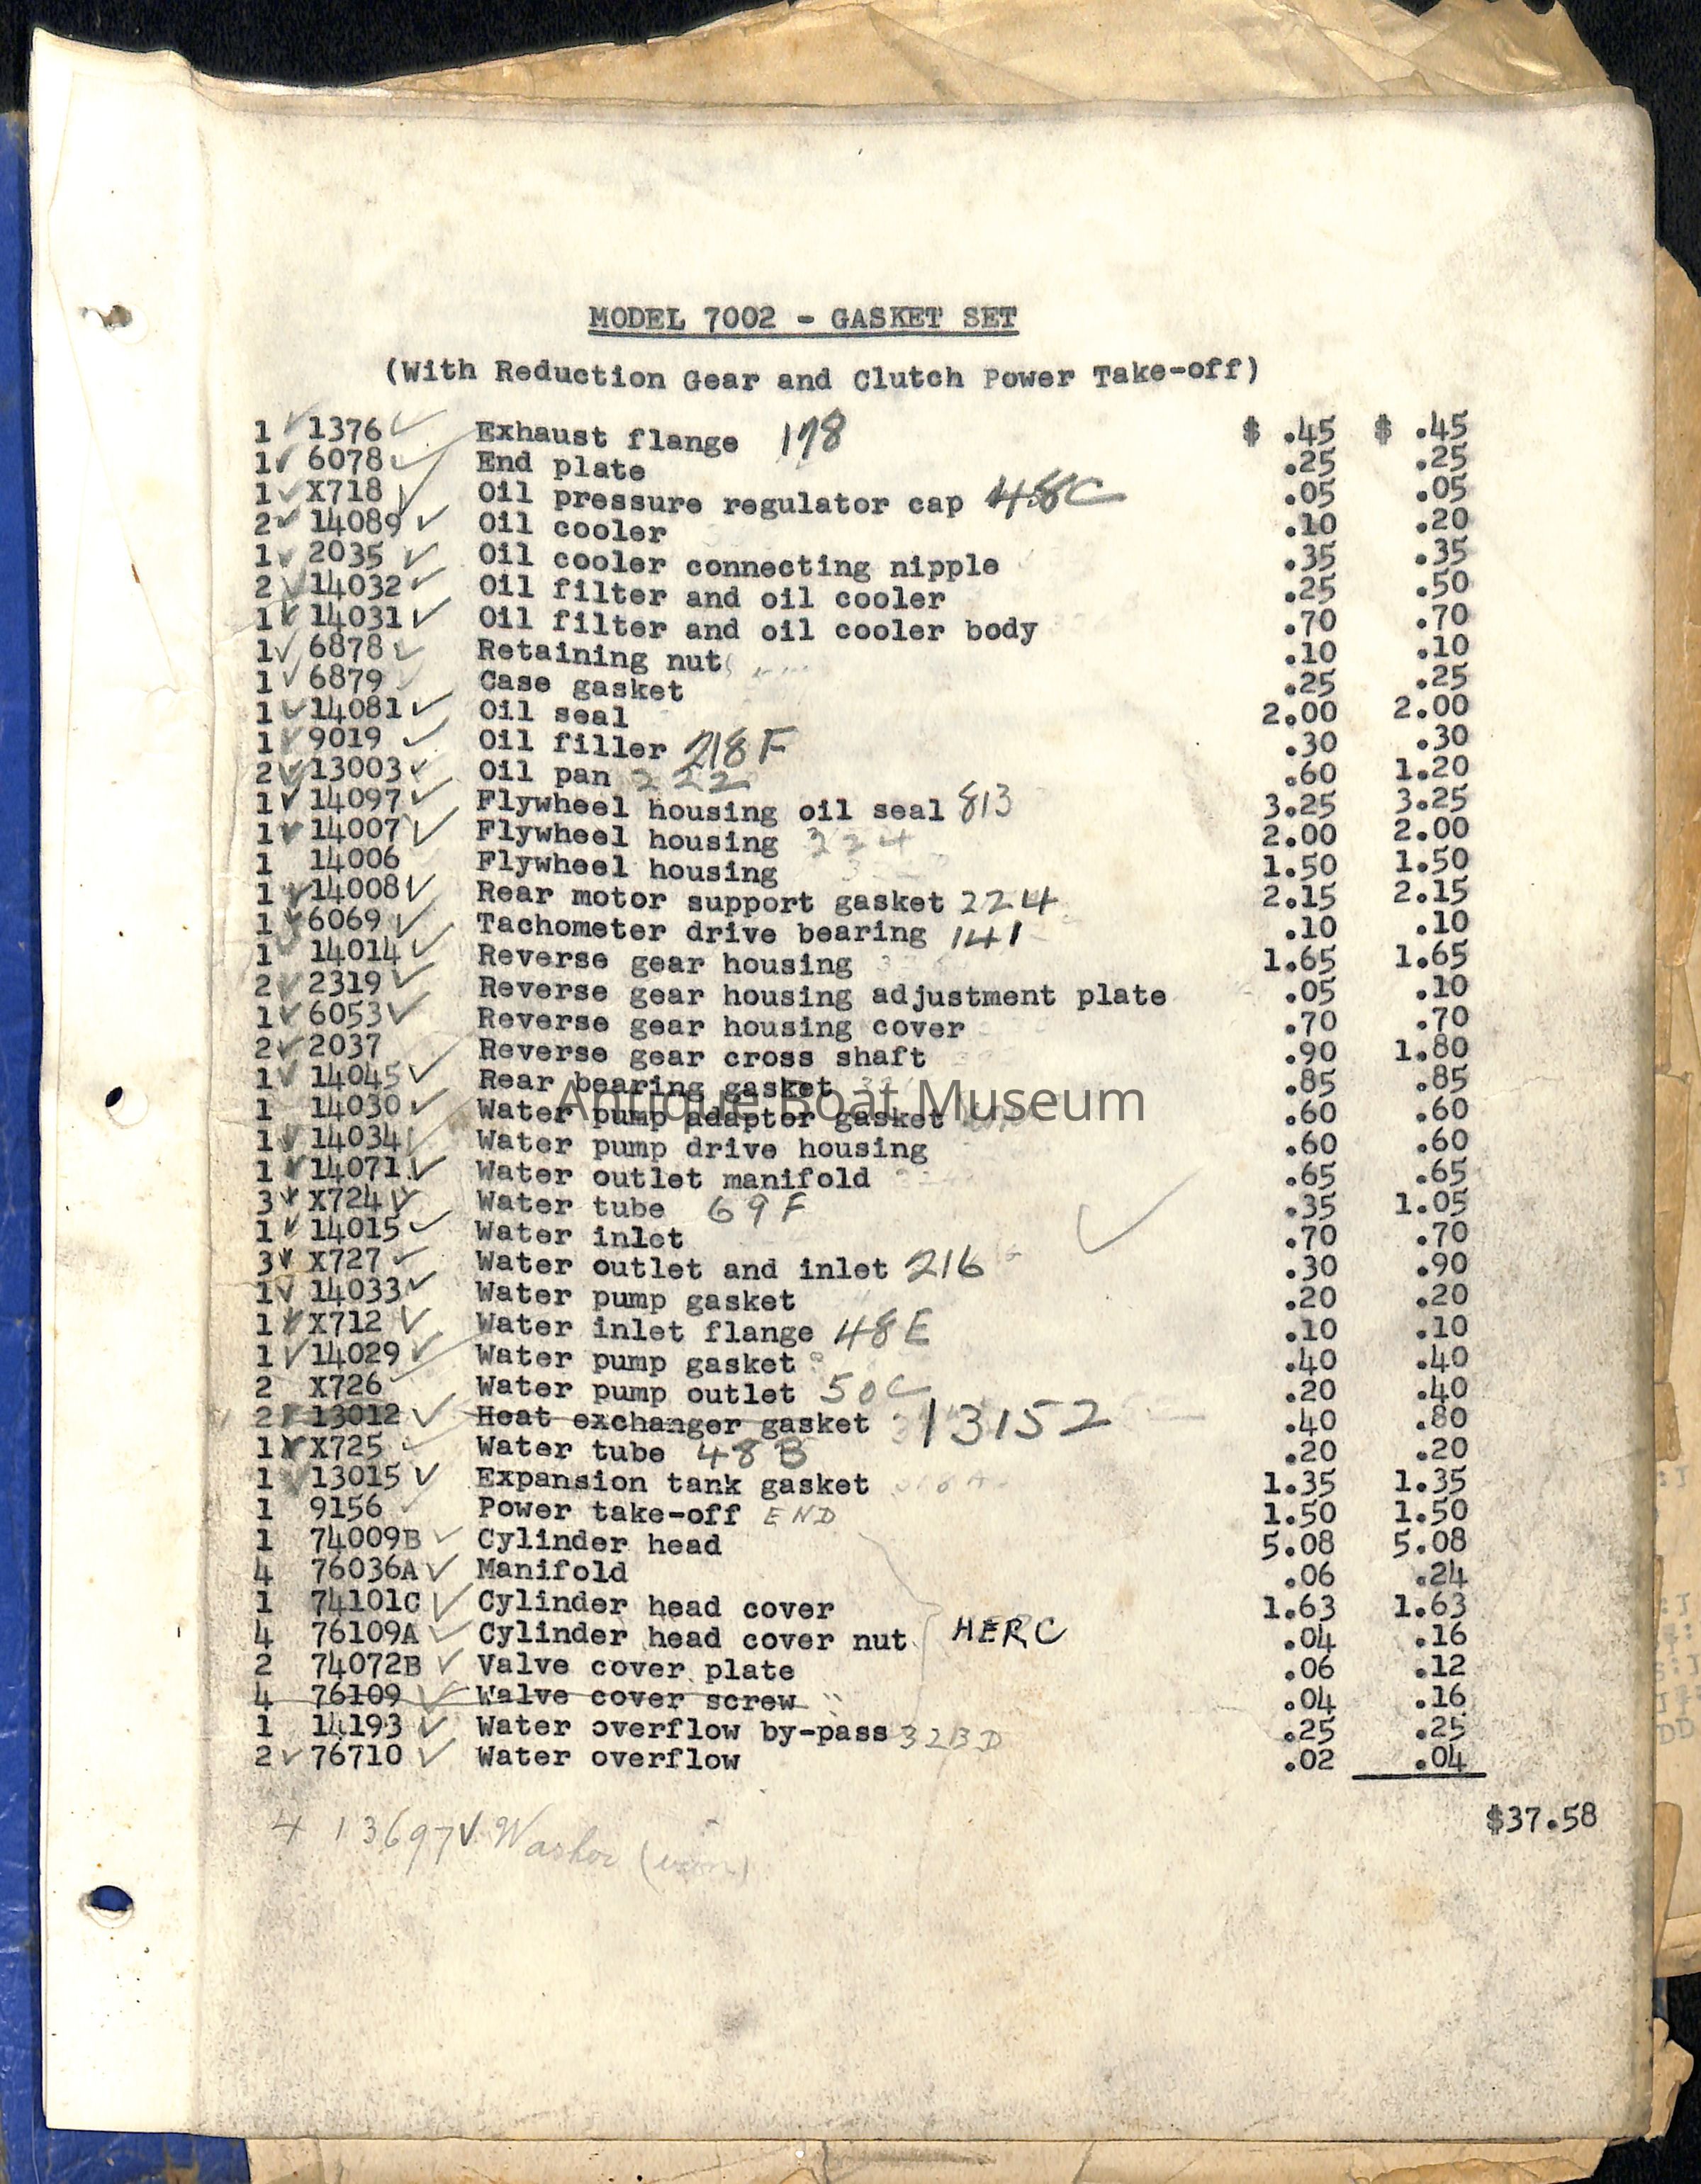 MODEL 7002 - GASKET SET
(With Reduction Gear and Clutch Power Take-off)
1 ✓ 1376 ✓ Exhaust flange 178 $ .45 $ .45
1 ✓ 6078 ✓ End plate .25 .25
1 ✓ X718 ✓ Oil pressure regulator cap 48C .05 .05
2 ✓ 14089 ✓ Oil cooler .10 .20
1 ✓ 2035 ✓ Oil cooler connecting nipple .35 .35
2 ✓ 14032 ✓ Oil filter and oil cooler .25 .50
1 ✓ 14031 ✓ Oil filter and oil cooler body .70 .70
1 ✓ 6878 ✓ Retaining nut .10 .10
1 ✓ 6879 ✓ Case gasket .25 .25
1 ✓ 14081 ✓ Oil seal 2.00 2.00
1 ✓ 9019 ✓ Oil filler 218F .30 .30
2 ✓ 13003 ✓ Oil pan 222 .60 1.20
1 ✓ 14097 ✓ Flywheel housing oil seal 813 3.25 3.25
1 ✓ 14007 ✓ Flywheel housing 2.00 2.00
1 14006 Flywheel housing 1.50 1.50
1 ✓ 14008 ✓ Rear motor support gasket 224 2.15 2.15
1 ✓ 6069 ✓ Tachometer drive bearing 141 .10 .10
1 ✓ 14014 ✓ Reverse gear housing 1.65 1.65
2 ✓ 2319 ✓ Reverse gear housing adjustment plate .05 .10
1 ✓ 6053 ✓ Reverse gear housing cover .70 .70
2 ✓ 2037 Reverse gear cross shaft .90 1.80
1 ✓ 14045 ✓ Rear bearing gasket .85 .85
Antique Boat Museum
1 14030 ✓ Water pump adapter gasket .60 .60
1 ✓ 14034 ✓ Water pump drive housing .60 .60
1 ✓ 14071 ✓ Water outlet manifold .65 .65
3 ✓ X724 ✓ Water tube 69F .35 1.05
1 ✓ 14015 ✓ Water inlet .70 .70
3 ✓ X727 ✓ Water outlet and inlet 216 .30 .90
1 ✓ 14033 ✓ Water pump gasket .20 .20
1 ✓ X712 ✓ Water inlet flange 48E .10 .10
1 ✓ 14029 ✓ Water pump gasket .40 .40
2 X726 ✓ Water pump outlet 50C .20 .40
2 ✓ 13012 ✓ Heat exchanger gasket 13152 .40 .80
1 ✓ X725 ✓ Water tube 48B .20 .20
1 ✓ 13015 ✓ Expansion tank gasket 1.35 1.35
1 9156 ✓ Power take-off END 1.50 1.50
1 74009B ✓ Cylinder head 5.08 5.08
4 76036A ✓ Manifold .06 .24
1 74101C ✓ Cylinder head cover 1.63 1.63
4 76109A ✓ Cylinder head cover nut HERC .04 .16
2 74072B ✓ Valve cover plate .06 .12
4 76109 ✓ Walve cover screw .04 .16
1 14193 ✓ Water overflow by-pass 323D .25 .25
2 ✓ 76710 ✓ Water overflow .02 .04
$37.58
4 13697 ✓ Washer